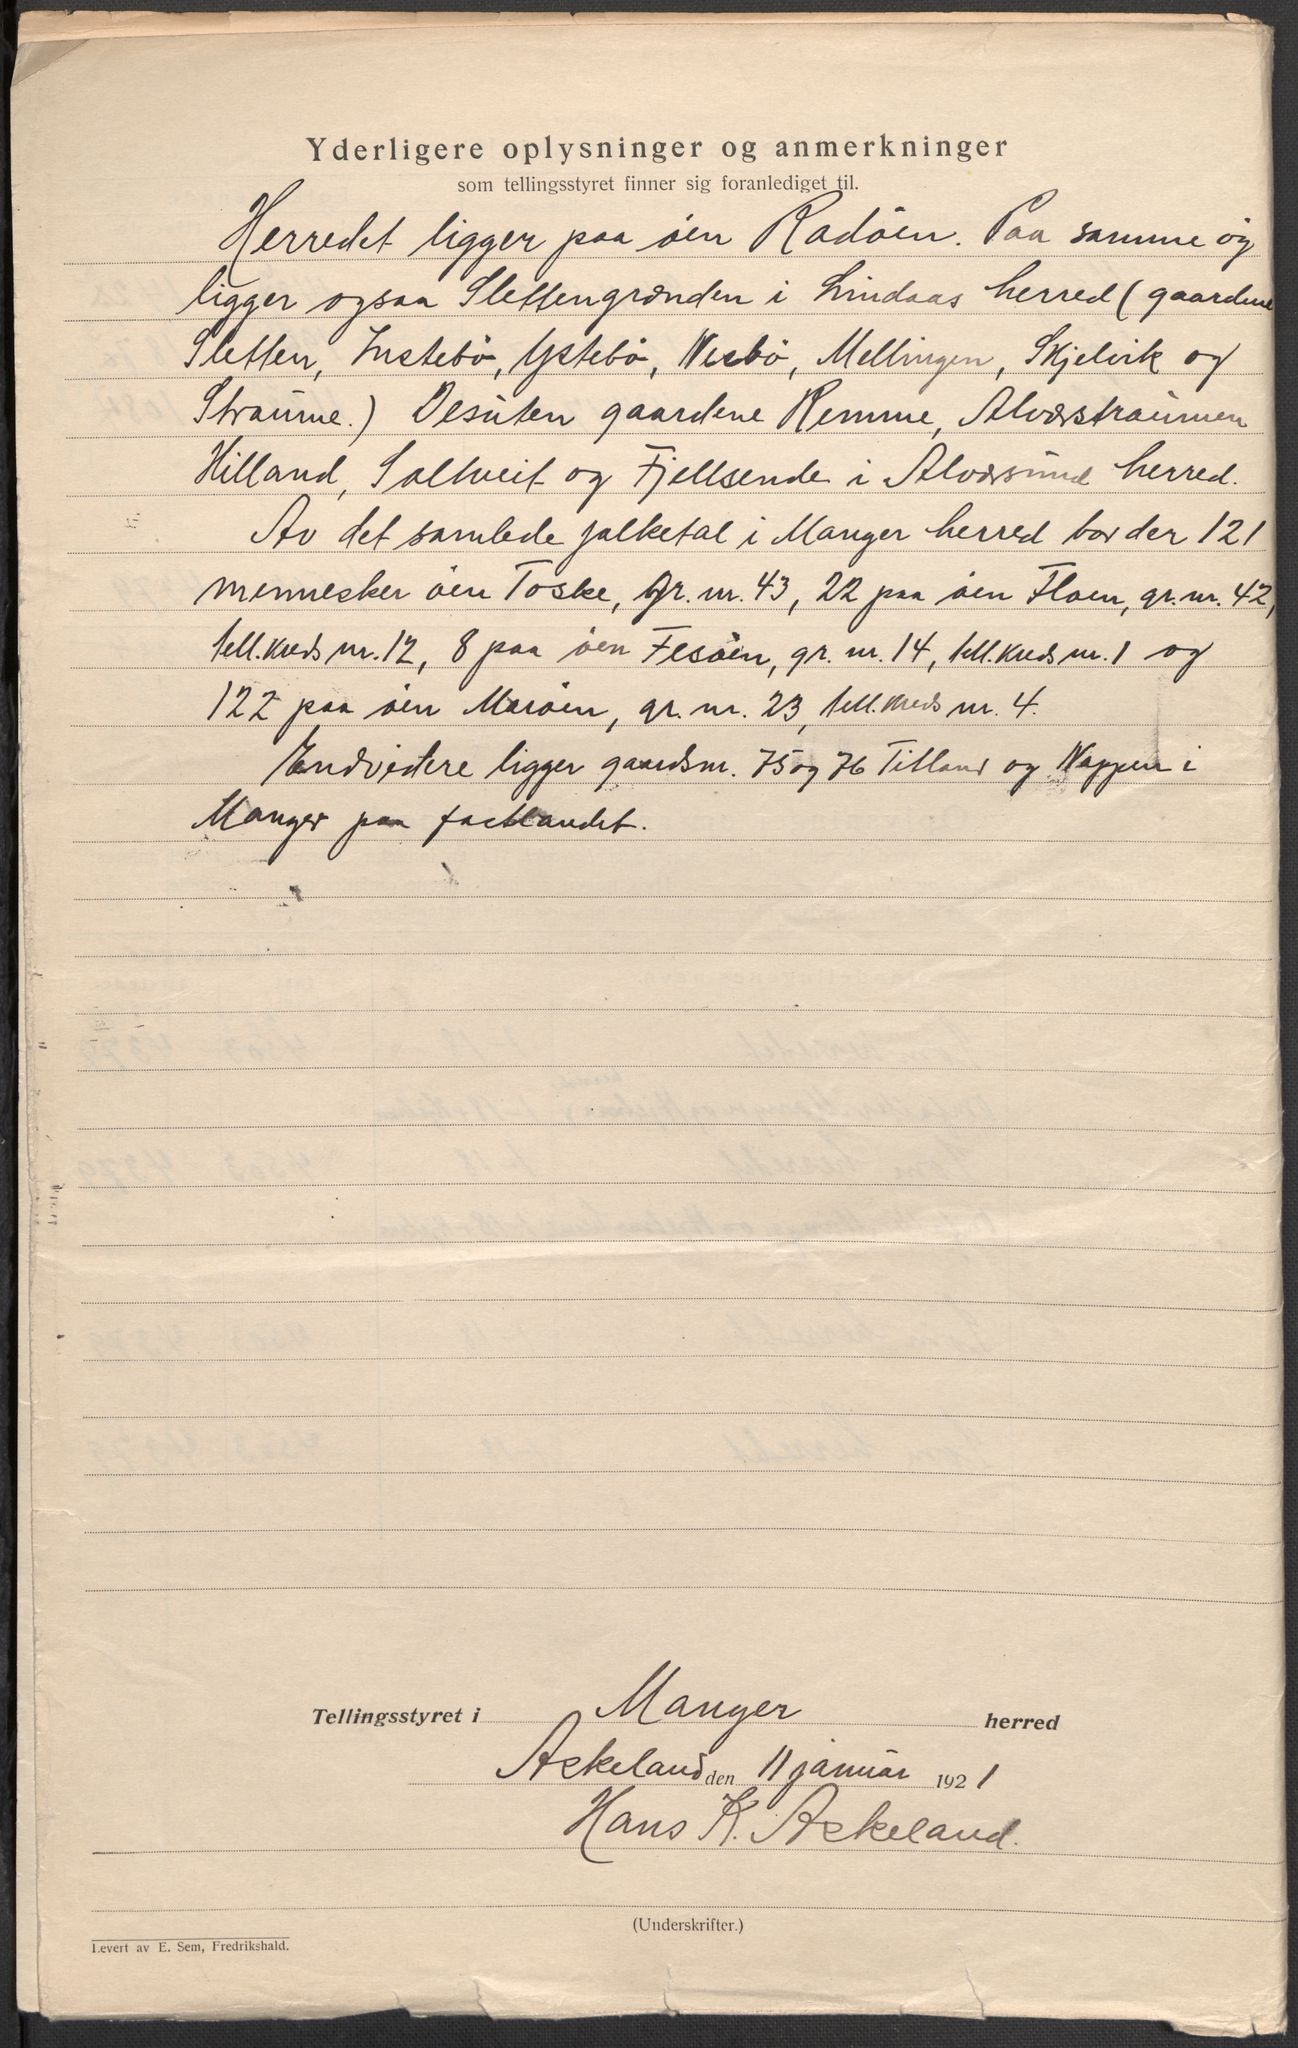 Yderligere oplysninger og anmerkninger
som tellingsstyret finner sig foranlediget til.
Herredet ligger paa øen Radöen. Paa samme öy
ligger ogsaa Slettengrænden i Lindaas herred (gaardene
Sletten, Instebö, Ystebö, Nesbö, Mellingen, Skjelvik og
Straume.) Desuten gaardene Remme, Alværstraumen
Hilland, Soltveit og Fjellsende i Alværsund herred.
Av det samlede folketal i Manger herred bor der 121
mennesker öen Toske, gr. nr. 43, 22 paa öen Floen, gr. nr. 42,
tell.kreds nr. 12, 8 paa öen Fesöen, gr. nr. 14, tell.kreds nr. 1 og
122 paa öen Maröen, gr. nr. 23, tell.kreds nr. 4.
Endvidere ligger gaardsnr. 75 og 76 Titland og Nappen i
Manger paa fastlandet.
Tellingsstyret i Manger herred
Askeland den 11 januar 1921
Hans K. Askeland.
(Underskrifter.)
Levert av E. Sem, Fredrikshald.